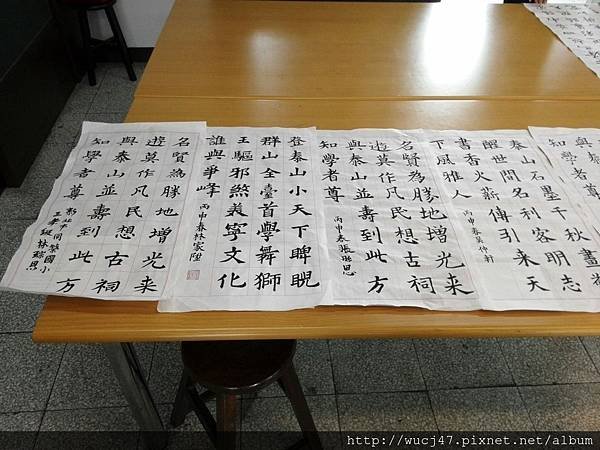 知學者尊
泰山石墨千秋畫
醒世問名利客明志
書香火薪傳引来天
下風雅人
丙申春吳竹軒
名賢為勝地增光来
遊莫作凡民想古祠
與泰山並壽到此方
知學者尊
丙申春張
登泰山小天下睥睨
群山全臺首學舞獅
王驅邪煞義寧文化
誰與爭峰
丙申春林家陞
名賢為勝地增光来
遊莫作凡民想古祠
與泰山並壽到此方
知學者尊
新北市同榮國小
http://wucj47.pixnet.net/album